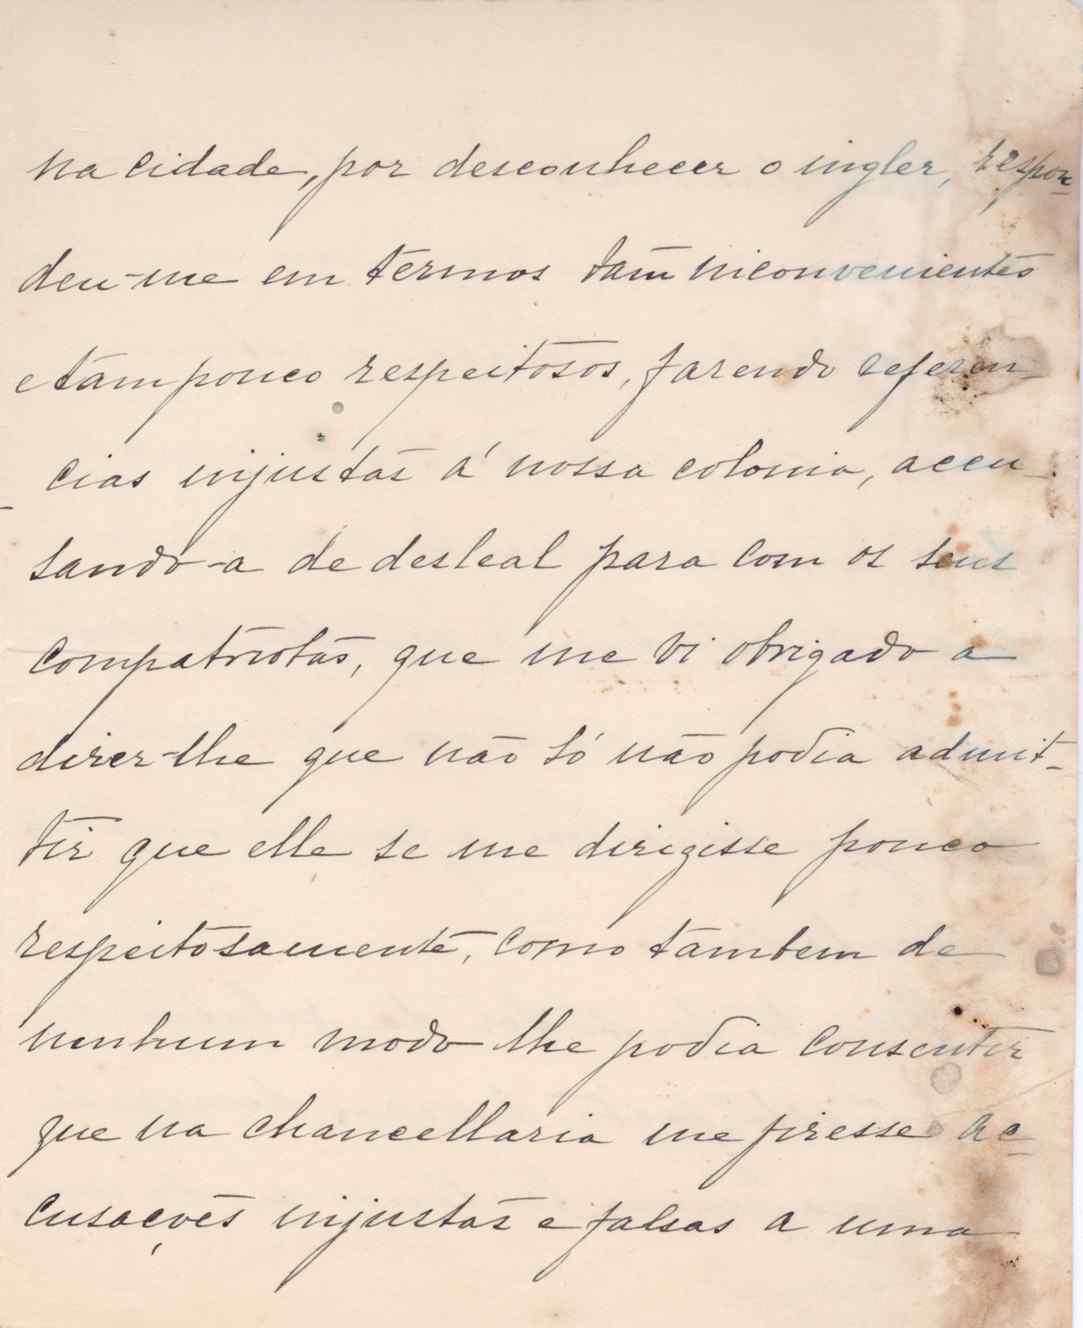 na cidade, por desconhecer o inglez, respon-
deu-me em termos tam inconvenientes
e tam pouco respeitosos, fazendo referen-
cias injustas á nossa colonia, accu-
sando-a de desleal para com os seus
compatriotas, que me vi obrigado a
dizer-lhe que não só não podia admit-
tir que elle se me dirigisse pouco
respeitosamente, como tambem de
nenhum modo lhe podia consentir
que na chancellaria me fizesse ac-
cusações injustas e falsas a uma